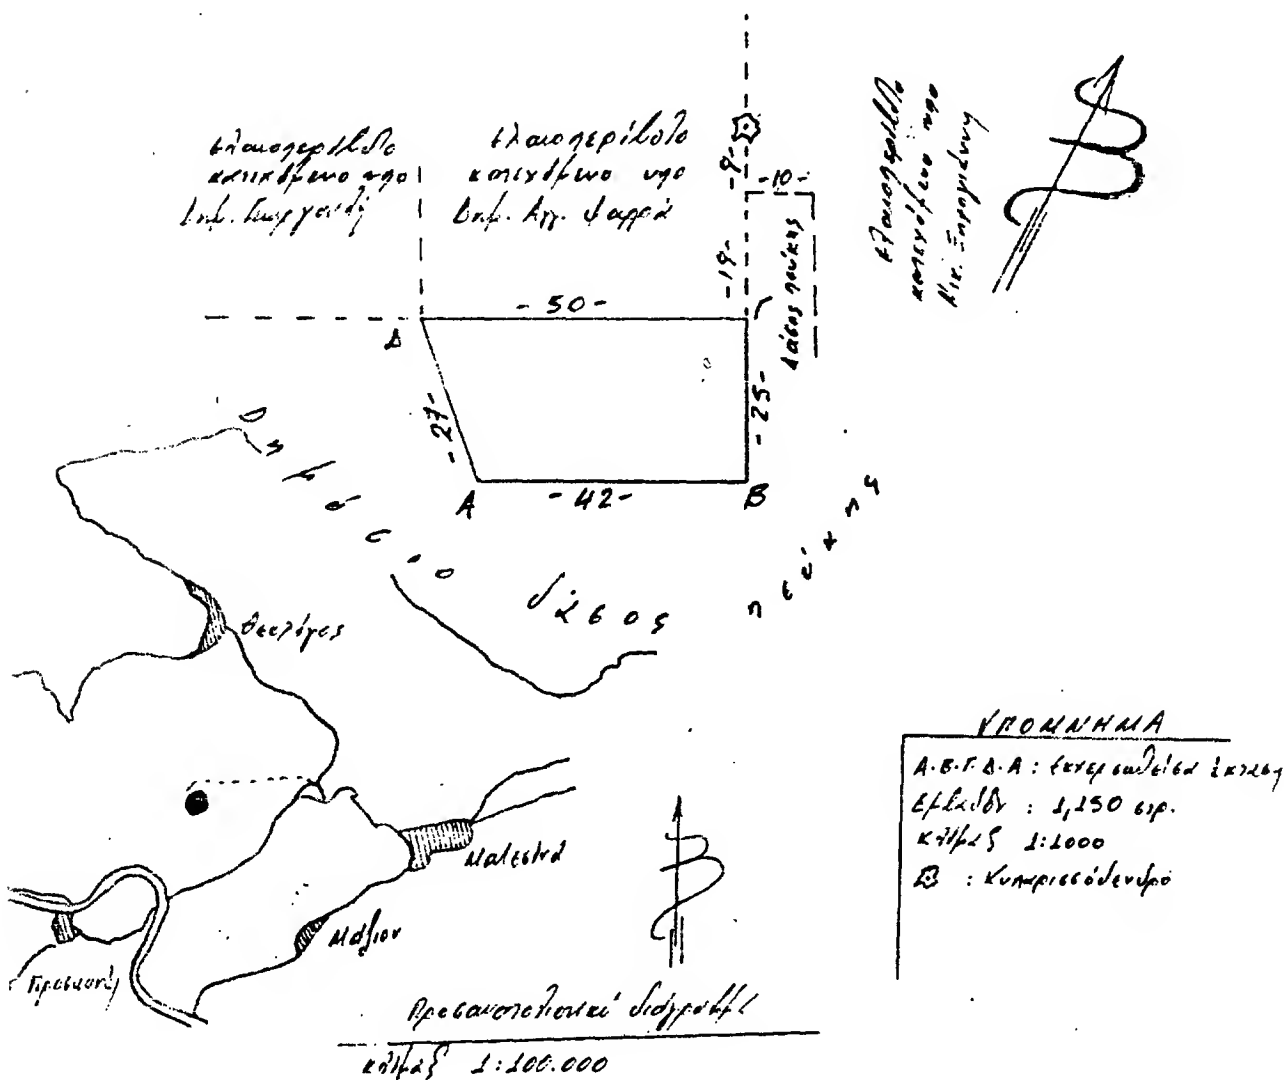 ελαιοπερίβολο
κατεχόμενο υπο
Δημ. Γεωργαντά
ελαιοπερίβολο
κατεχόμενο υπο
Δημ. Αγγ. Ψαρρά
ελαιοπερίβολο
κατεχόμενο υπο
Νικ.
-9-
-10-
-19-
Δάσος πεύκης
-50-
Γ
Δ
-27-
-25-
A
-42-
B
Δημόσιο δάσος πεύκης
Θεολόγος
Μαλεσίνα
Μάζιον
Προσκυνά
Προσανατολιστικό διάγραμμα
κλίμαξ 1:100.000
ΥΠΟΜΝΗΜΑ
Α.Β.Γ.Δ.Α : Εκχερσωθείσα έκταση
Εμβαδόν : 1,150 στρ.
κλίμαξ 1:1000
: Κυπαρισσόδενδρο